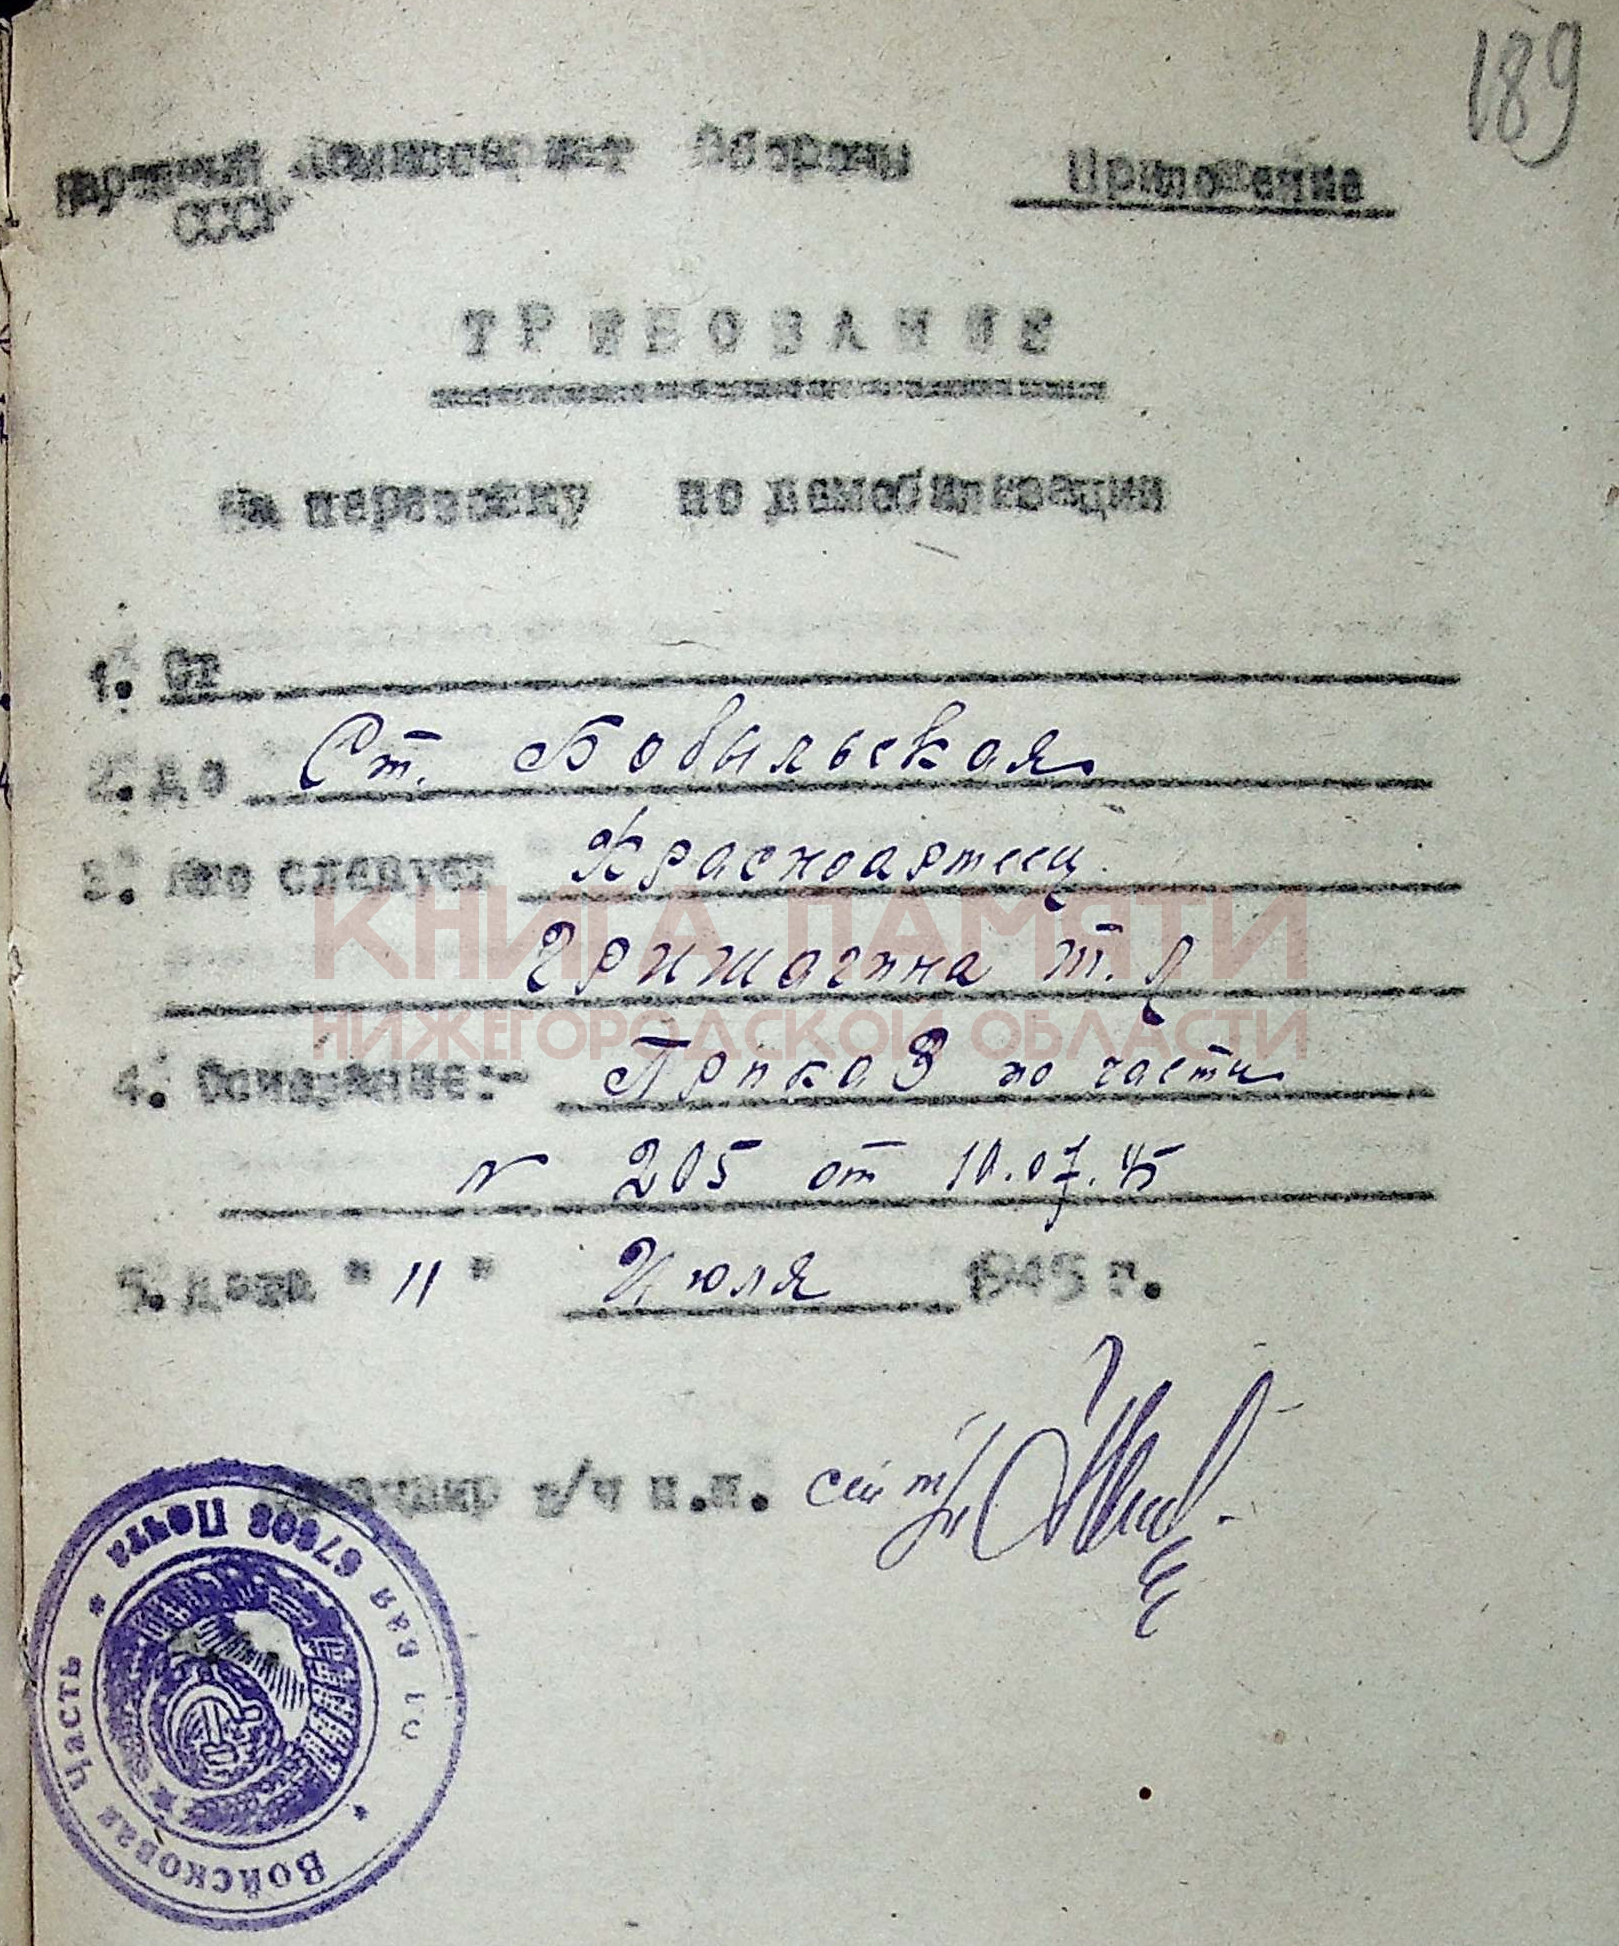 189
Народный Комиссариат Обороны
СССР
Приложение
ТРЕБОВАНИЕ
на перевозку по демобилизации
1. От
2. до Ст. Бобыльская
3. Кто следует Красноармеец
Гришагина Т. Я
КНИГА ПАМЯТИ
НИЖЕГОРОДСКОЙ ОБЛАСТИ
4. Основание:- Приказ по части
N 205 от 10.07.45
5. дата "11" Июля 1945 г.
Командир в/ч п.п.
Войсковая Часть * 67808 Полевая Почта *